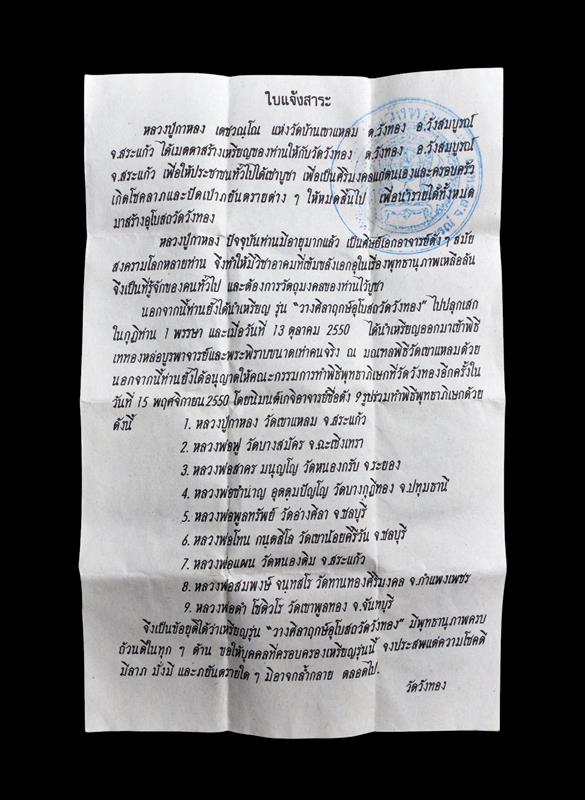 ใบแจ้งสาระ
หลวงปู่กาหลง เตชวณฺโณ แห่งวัดบ้านเขาแหลม ต.วังทอง อ.วังสมบูรณ์
จ.สระแก้ว ได้เมตตาสร้างเหรียญของท่านให้กับวัดวังทอง ต.วังทอง อ.วังสมบูรณ์
จ.สระแก้ว เพื่อให้ประชาชนทั่วไปได้เช่าบูชา เพื่อเป็นศิริมงคลแก่ตนเองและครอบครัว
เกิดโชคลาภและปัดเป่าภยันตรายต่าง ๆ ให้หมดสิ้นไป เพื่อนำรายได้ทั้งหมด
มาสร้างอุโบสถวัดวังทอง
หลวงปู่กาหลง ปัจจุบันท่านมีอายุมากแล้ว เป็นศิษย์เอกอาจารย์ดัง ๆ สมัย
สงครามโลกหลายท่าน จึงทำให้มีวิชาอาคมที่เข้มขลังเอกอุในเรื่องพุทธานุภาพเหลือล้น
จึงเป็นที่รู้จักของคนทั่วไป และต้องการวัตถุมงคลของท่านไว้บูชา
นอกจากนี้ท่านยังได้นำเหรียญ รุ่น "วางศิลาฤกษ์อุโบสถวัดวังทอง" ไปปลุกเสก
ในกุฏิท่าน 1 พรรษา และเมื่อวันที่ 13 ตุลาคม 2550 ได้นำเหรียญออกมาเข้าพิธี
เททองหล่อบูรพาจารย์และพระพิราบขนาดเท่าคนจริง ณ มณฑลพิธีวัดเขาแหลมด้วย
นอกจากนี้ท่านยังได้อนุญาตให้คณะกรรมการทำพิธีพุทธาภิเษกที่วัดวังทองอีกครั้งใน
วันที่ 15 พฤศจิกายน 2550 โดยนิมนต์เกจิอาจารย์ชื่อดัง 9 รูปร่วมทำพิธีพุทธาภิเษกด้วย
ดังนี้
1. หลวงปู่กาหลง วัดเขาแหลม จ.สระแก้ว
2. หลวงพ่อฟู วัดบางสมัคร จ.ฉะเชิงเทรา
3. หลวงพ่อสาคร มนุญฺโญ วัดหนองกรับ จ.ระยอง
4. หลวงพ่อชำนาญ อุตตฺมปัญฺโญ วัดบางกุฎีทอง จ.ปทุมธานี
5. หลวงพ่อพูลทรัพย์ วัดอ่างศิลา จ.ชลบุรี
6. หลวงพ่อโทน กนฺตสีโล วัดเขาน้อยคีรีวัน จ.ชลบุรี
7. หลวงพ่อแผน วัดหนองติม จ.สระแก้ว
8. หลวงพ่อสมพงษ์ จนฺทสโร วัดทานทองศิริมงคล จ.กำแพงเพชร
9. หลวงพ่อดำ โชติวโร วัดเขาพูลทอง จ.จันทบุรี
จึงเป็นข้อยุติได้ว่าเหรียญรุ่น "วางศิลาฤกษ์อุโบสถวัดวังทอง" มีพุทธานุภาพครบ
ถ้วนดีในทุก ๆ ด้าน ขอให้บุคคลที่ครอบครองเหรียญรุ่นนี้ จงประสพแต่ความโชคดี
มีลาภ มั่งมี และภยันตรายใด ๆ มิอาจกล้ำกลาย ตลอดไป.
วัดวังทอง